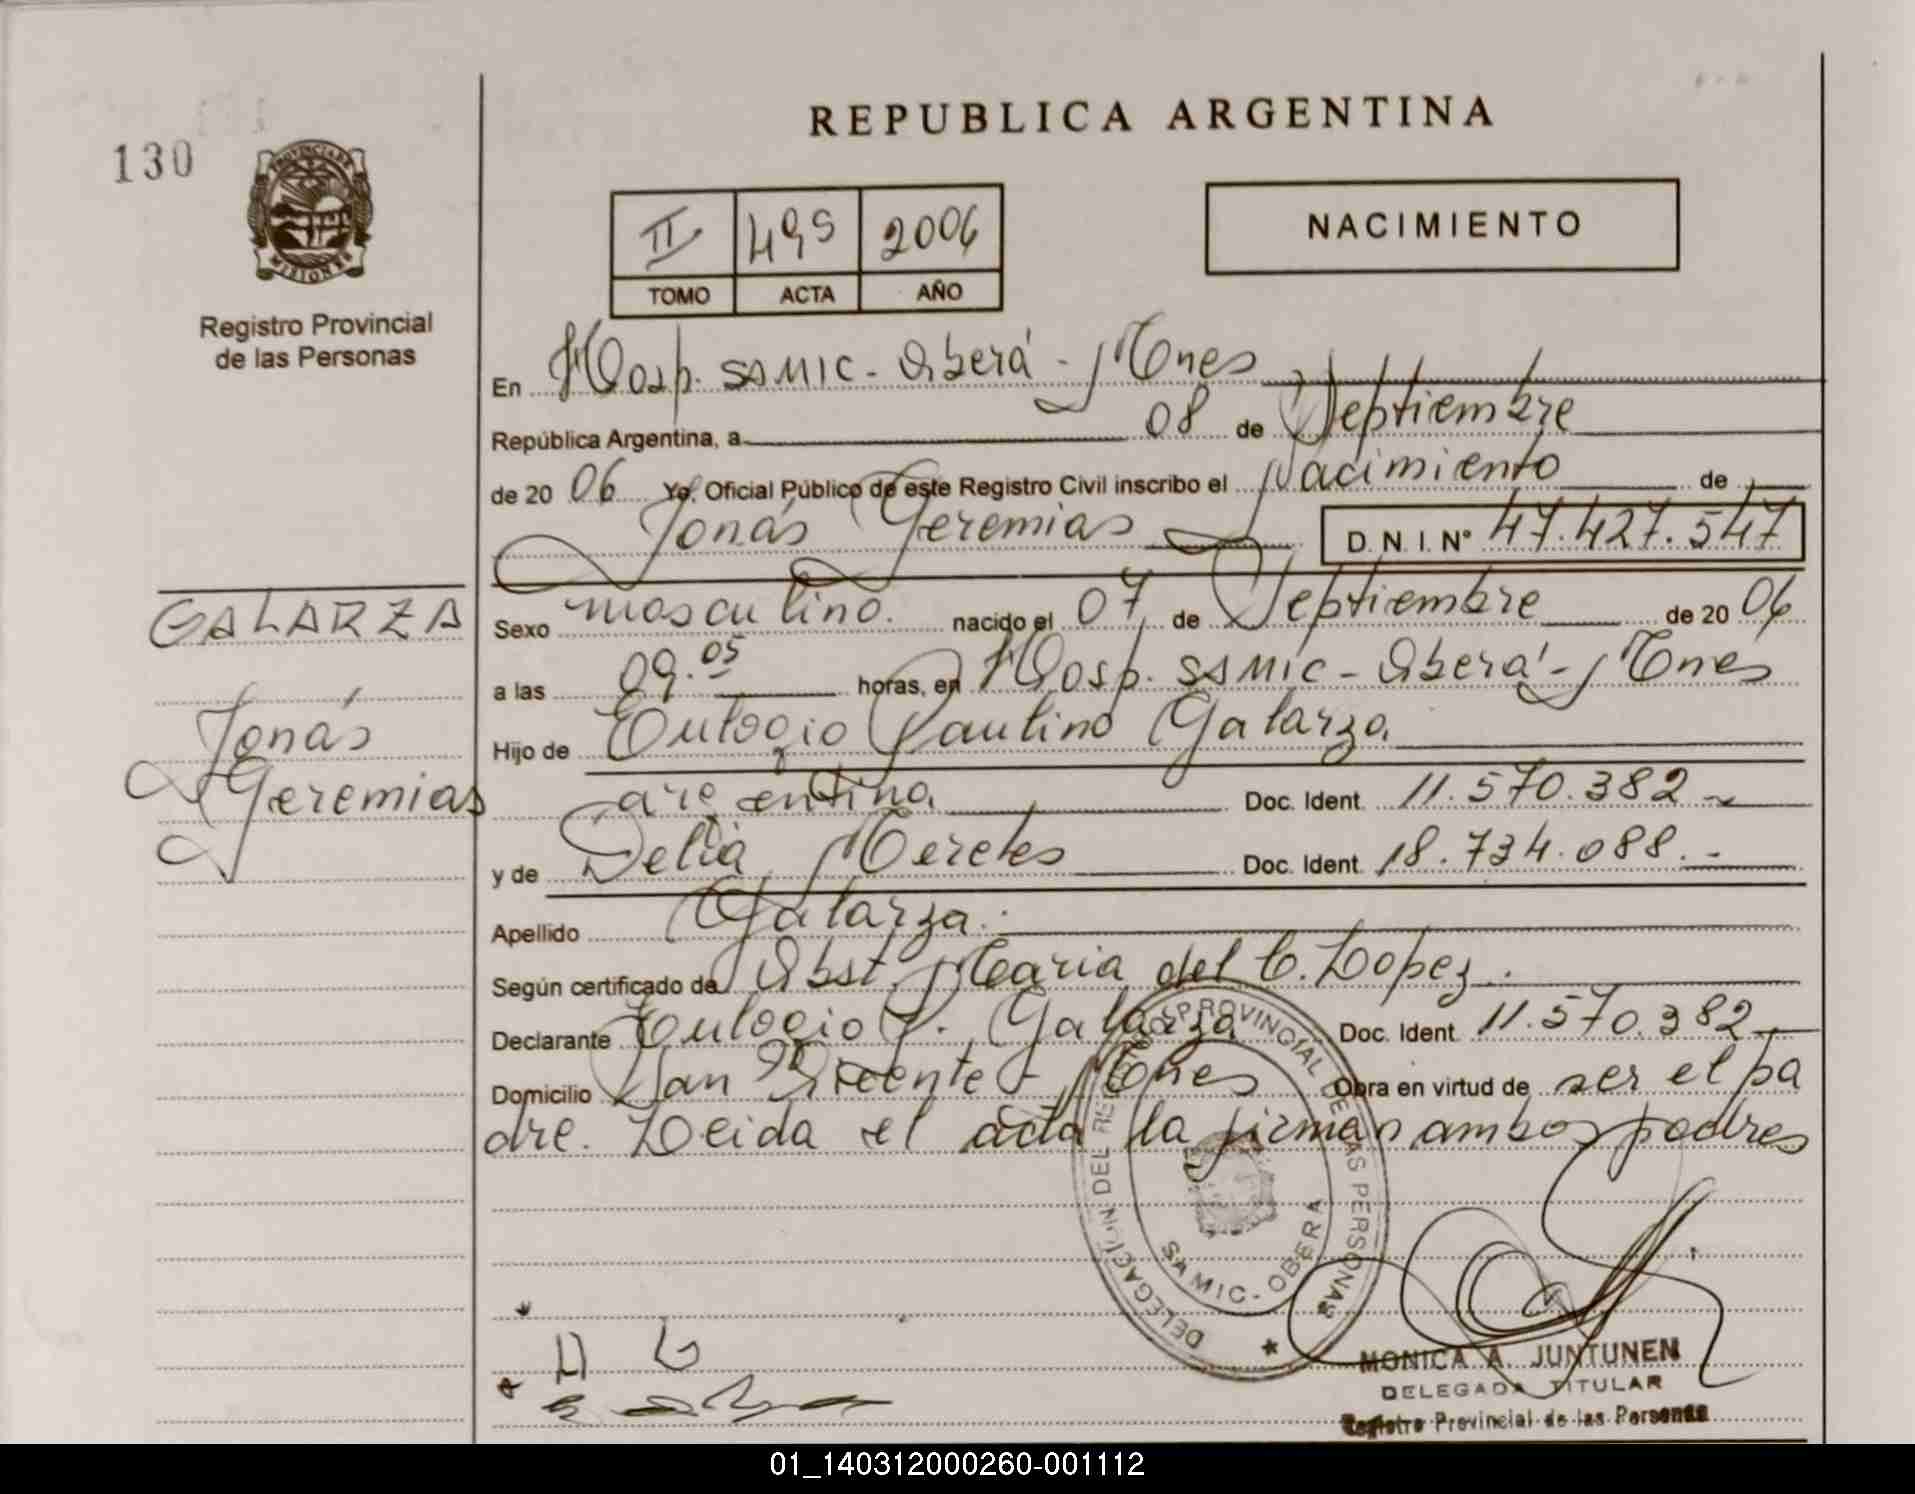 REPUBLICA ARGENTINA
130
PROVINCIA DE
MISIONES
Registro Provincial
de las Personas
II 495 2006
TOMO ACTA AÑO
NACIMIENTO
En Hosp. SAMIC - Oberá - Mnes
República Argentina, a 08 de Septiembre
de 20 06 Yo, Oficial Público de este Registro Civil inscribo el Nacimiento de
Jonás Geremias D. N. I. Nº 47.427.547
GALARZA
Jonás
Geremias
Sexo masculino. nacido el 07 de Septiembre de 20 06
a las 09.05 horas, en Hosp. SAMIC - Oberá - Mnes
Hijo de Eulogio Paulino Galarza
argentina Doc. Ident. 11.570.382
y de Delia Doc. Ident. 18.734.088.-
Apellido Galarza.
Según certificado de Obst. Maria del C. Lopez.
Declarante Eulogio P. Galarza Doc. Ident. 11.570.382
Domicilio San Vicente - Mnes Obra en virtud de ser el pa
dre. Leida el acta la firman ambos padres
DELEGACION DEL REGISTRO PROVINCIAL DE LAS PERSONAS
SAMIC - OBERA
MONICA A. JUNTUNEN
DELEGADA TITULAR
Registro Provincial de las Personas
01_140312000260-001112